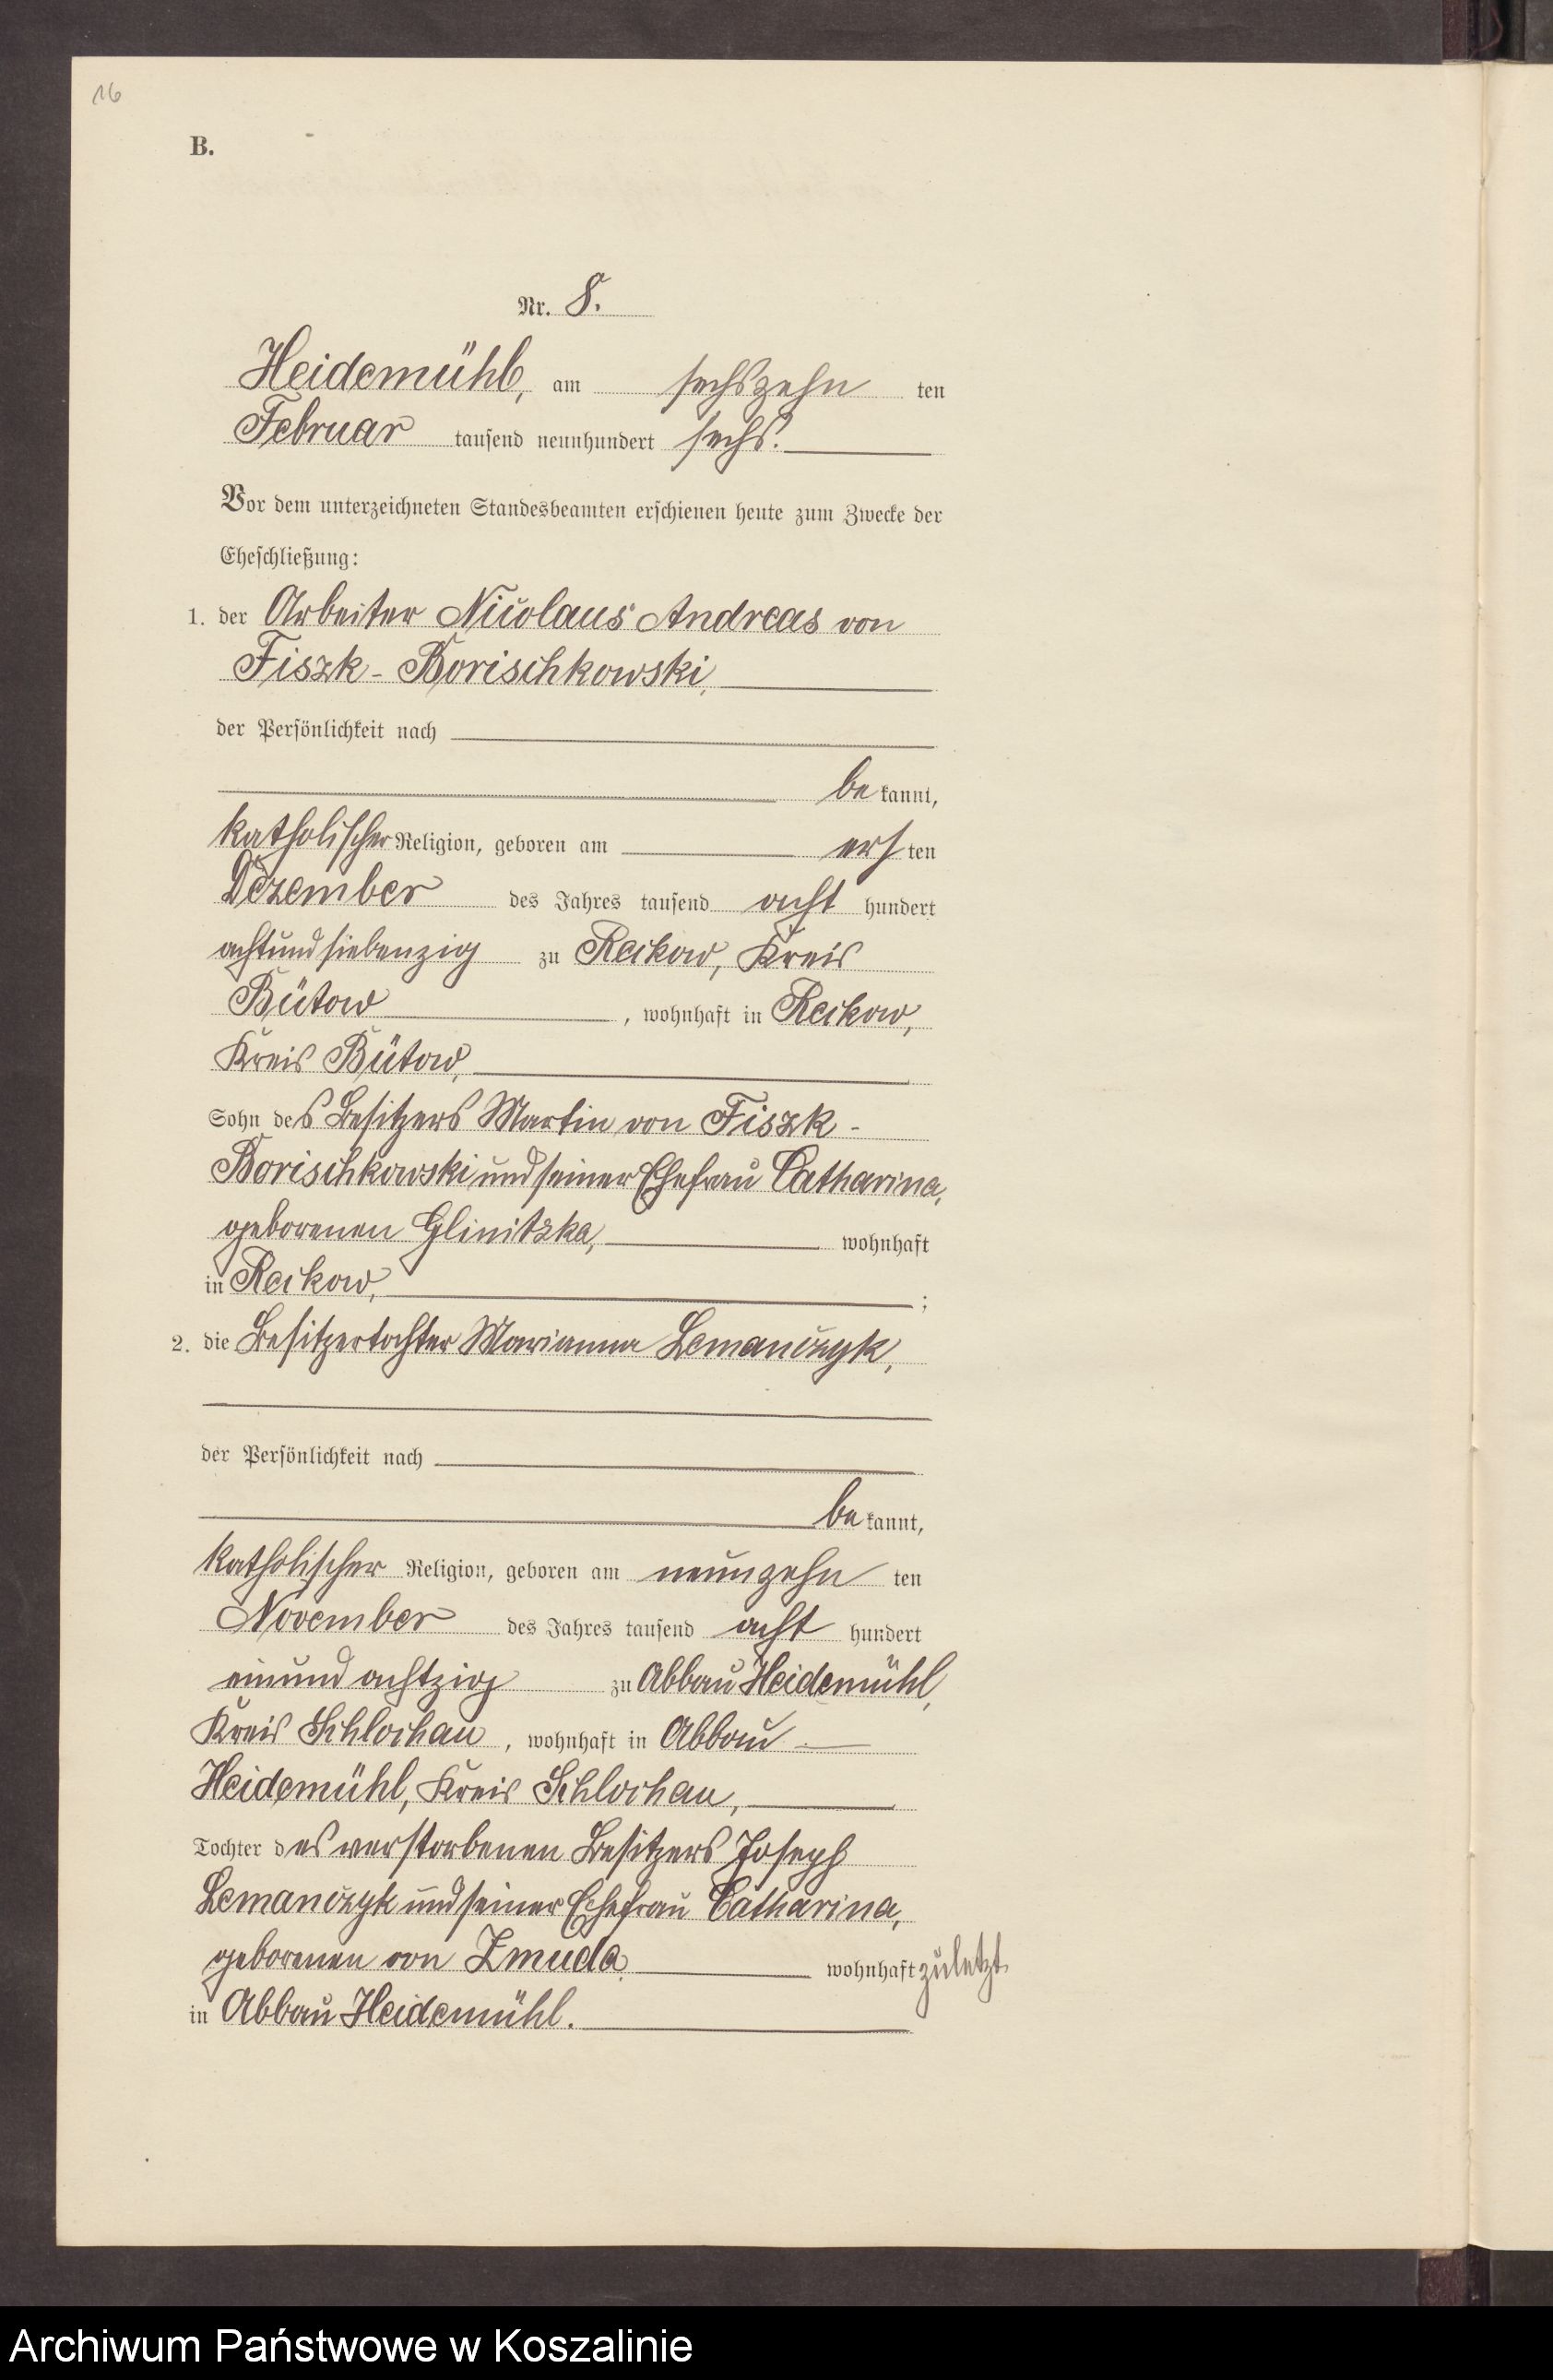 16
B.
Nr. 8.
Heidemühl, am sechszehn ten
Februar tausend neunhundert sechs.
Vor dem unterzeichneten Standesbeamten erschienen heute zum Zwecke der
Eheschließung:
1. der Arbeiter Nicolaus Andreas von
Fiszk - Borischkowski,
der Persönlichkeit nach
be kannt,
katholischer Religion, geboren am ers ten
Dezember des Jahres tausend acht hundert
achtundsiebenzig zu Reckow, Kreis
Bütow, wohnhaft in Reckow,
Kreis Bütow,
Sohn des Besitzers Martin von Fiszk -
Borischkowski und seiner Ehefrau Catharina,
geborenen Glinitzka, wohnhaft
in Reckow, ;
2. die Besitzertochter Marianna Lemanczyk,
der Persönlichkeit nach
be kannt,
katholischer Religion, geboren am neunzehn ten
November des Jahres tausend acht hundert
einundachtzig zu Abbau Heidemühl,
Kreis Schlochau, wohnhaft in Abbau
Heidemühl, Kreis Schlochau,
Tochter des verstorbenen Besitzers Joseph
Lemanczyk und seiner Ehefrau Catharina,
geborenen von Zmuda, wohnhaft zuletzt
in Abbau Heidemühl.
Archiwum Państwowe w Koszalinie